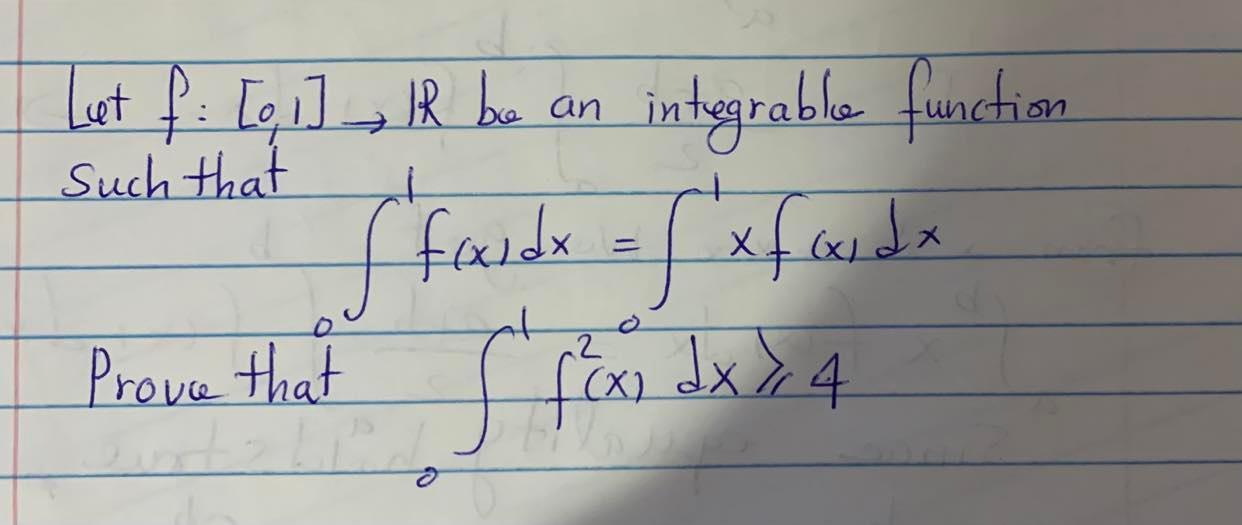 Let f: [0,1] → ℝ be an integrable function
Such that
∫₀¹ f(x) dx = ∫₀¹ x f(x) dx
Prove that ∫₀¹ f²(x) dx ⩾ 4